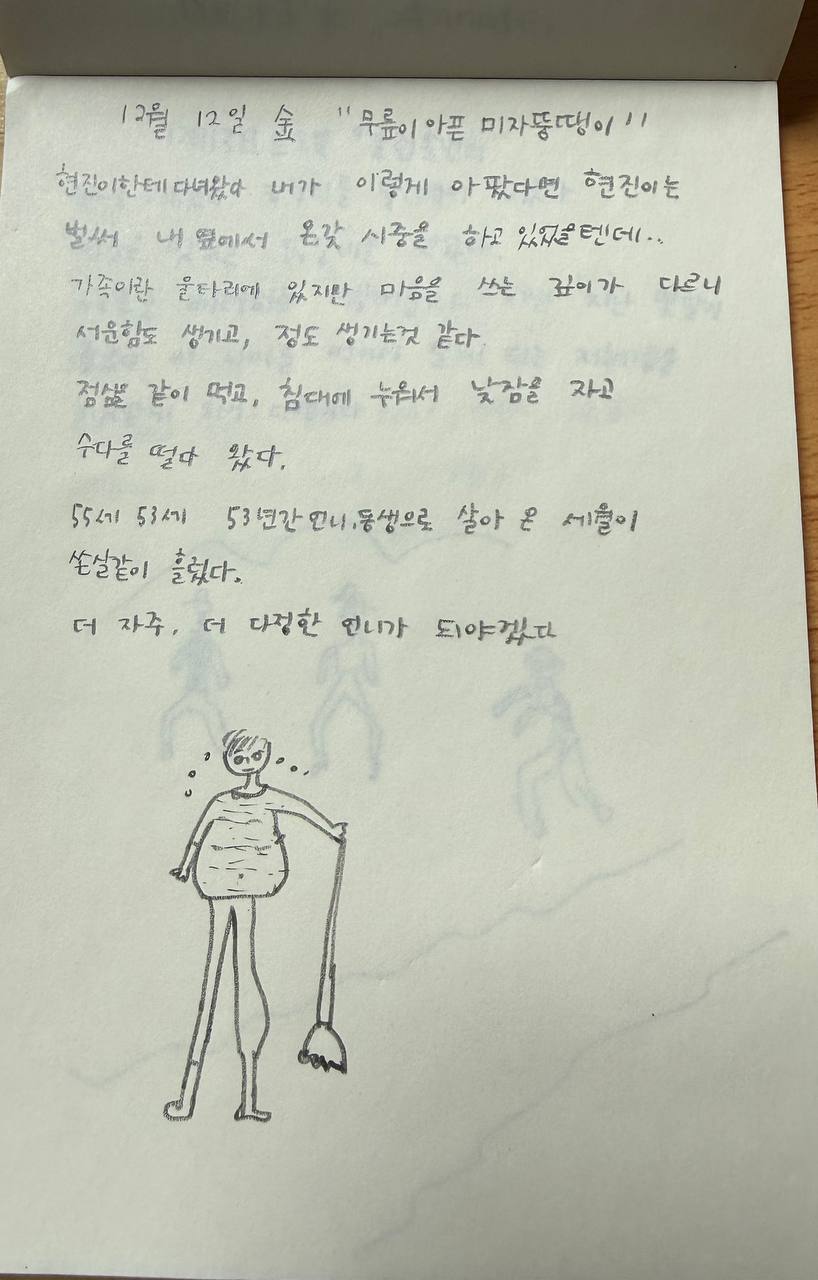 12월 12일 金 "무릎이 아픈 미자뚱땡이"
현진이한테 다녀왔다 내가 이렇게 아팠다면 현진이는
벌써 내 옆에서 온갖 시중을 하고 있었을텐데..
가족이란 울타리에 있지만 마음을 쓰는 깊이가 다르니
서운함도 생기고, 정도 생기는것 같다.
점심을 같이 먹고, 침대에 누워서 낮잠을 자고
수다를 떨다 왔다.
55세 53세 53년간 언니.동생으로 살아 온 세월이
쏜살같이 흘렀다.
더 자주, 더 다정한 언니가 되야겠다